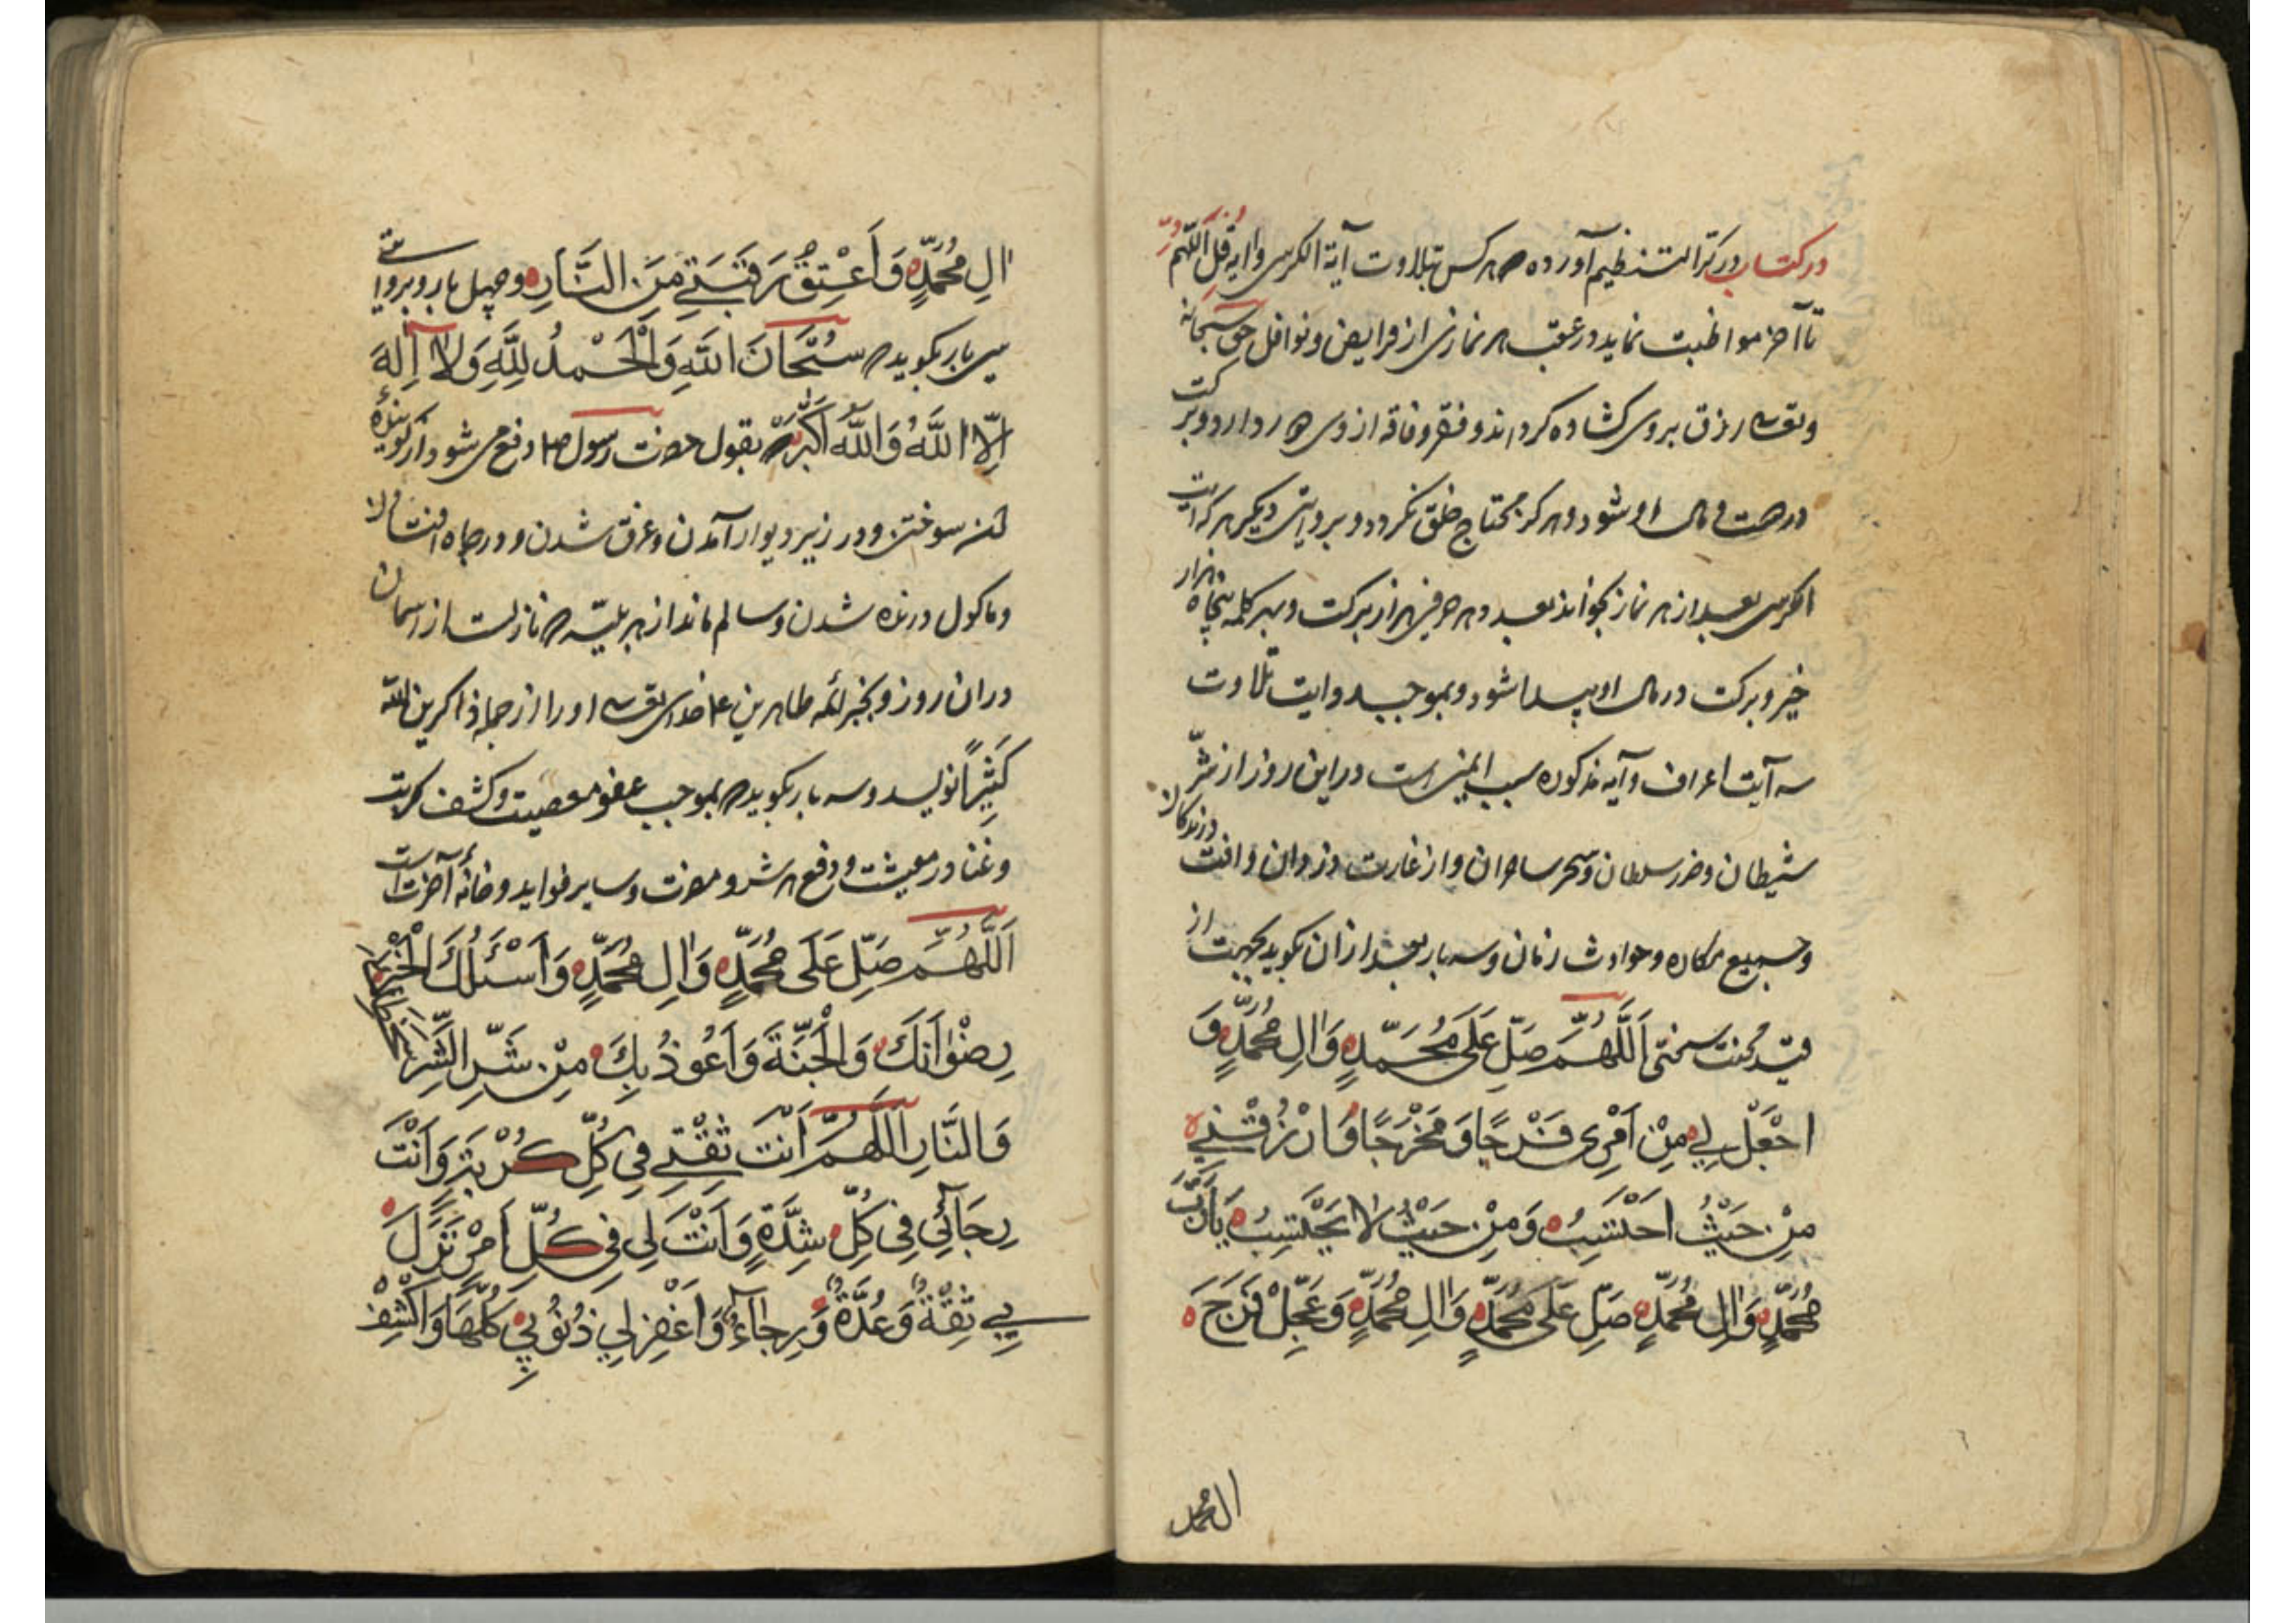 در کتاب در التنظیم آورده که هر کس بتلاوت آیة الکرسی و ایه قل اللهم
تا آخر مواظبت نماید در عقب هر نمازی از فرایض و نوافل حق سبحانه
و تعالی رزق بر وی کشاده کرداند و فقر و فاقه از وی دور دارد و برکت
در صحت و مال او شود و هرکز محتاج خلق نکردد و بروایتی دیکر هر که ایت
الکرسی بعد از هر نماز بخواند بعدد هر حرفی هزار برکت و بهر کلمه پنجاه هزار
خیر و برکت در مال او پیدا شود و بموجب روایت تلاوت
سه آیت اعراف و آیه مذکوره سبب ایمنی است در این روز از شر
شیطان و ضرر سلطان و سحر ساحران و از غارت دزدان و افت درندکان
و جمیع مکاره و حوادث زمان و سه بار بعد از ان بکوید بجهت از
قید محنت سختی اَللّهُمَّ صَلِّ عَلَی مُحَمَّدٍ وَالِ مُحَمَّدٍ وَ
اجْعَلْ لِی مِنْ اَمْرِی فَرَجًا وَ مَخْرَجًا وَارْزُقْنِی
مِنْ حَیْثُ اَحْتَسِبُ وَمِنْ حَیْثُ لا یَحْتَسِبُ یَا رَبَّ
مُحَمَّدٍ وَالِ مُحَمَّدٍ صَلِّ عَلَی مُحَمَّدٍ وَالِ مُحَمَّدٍ وَعَجِّلْ فَرَجَ
ال محمد
الِ مُحَمَّدٍ وَاَعْتِقْ رَقَبَتِی مِنَ النَّارِ و چهل بار و بروایتی
سی بار بکوید که سُبْحَانَ اللّهِ وَالْحَمْدُ لِلّهِ وَلا اِلهَ
اِلّا اللّهُ وَاللّهُ اَکْبَرُ که بقول حضرت رسول ص دفع می شود از کوینده
سوختن و در زیر دیوار آمدن و غرق شدن و در چاه افتادن
و ماکول درنده شدن و سالم ماند از هر بلیّه که نازلست از اسمان
در ان روز و بخبر ائمه طاهرین ع خدای تعالی او را از جمله ذاکرین الله
کَثِیرًا نویسد و سه بار بکوید که بموجب عفو معصیت و کشف کربت
و غنا در معیشت و دفع هر شر و مضرت و سایر فواید و خانهٔ آخرت است
اَللّهُمَّ صَلِّ عَلَی مُحَمَّدٍ وَالِ مُحَمَّدٍ وَاَسْئَلُکَ الْخَیْرَ
رِضْوَانَکَ وَالْجَنَّةَ وَاَعُوذُ بِکَ مِنْ شَرِّ الشَّرِّ
وَالنَّارِ اَللّهُمَّ اَنْتَ ثِقَتِی فِی کُلِّ کُرْبَةٍ وَاَنْتَ
رِجَآئِی فِی کُلِّ شِدَّةٍ وَاَنْتَ لِی فِی کُلِّ اَمْرٍ نَزَلَ
بِی ثِقَةٌ وَعُدَّةٌ وَرِجَاءٌ وَاغْفِرْ لِی ذُنُوبِی کُلَّهَا وَاکْشِفْ